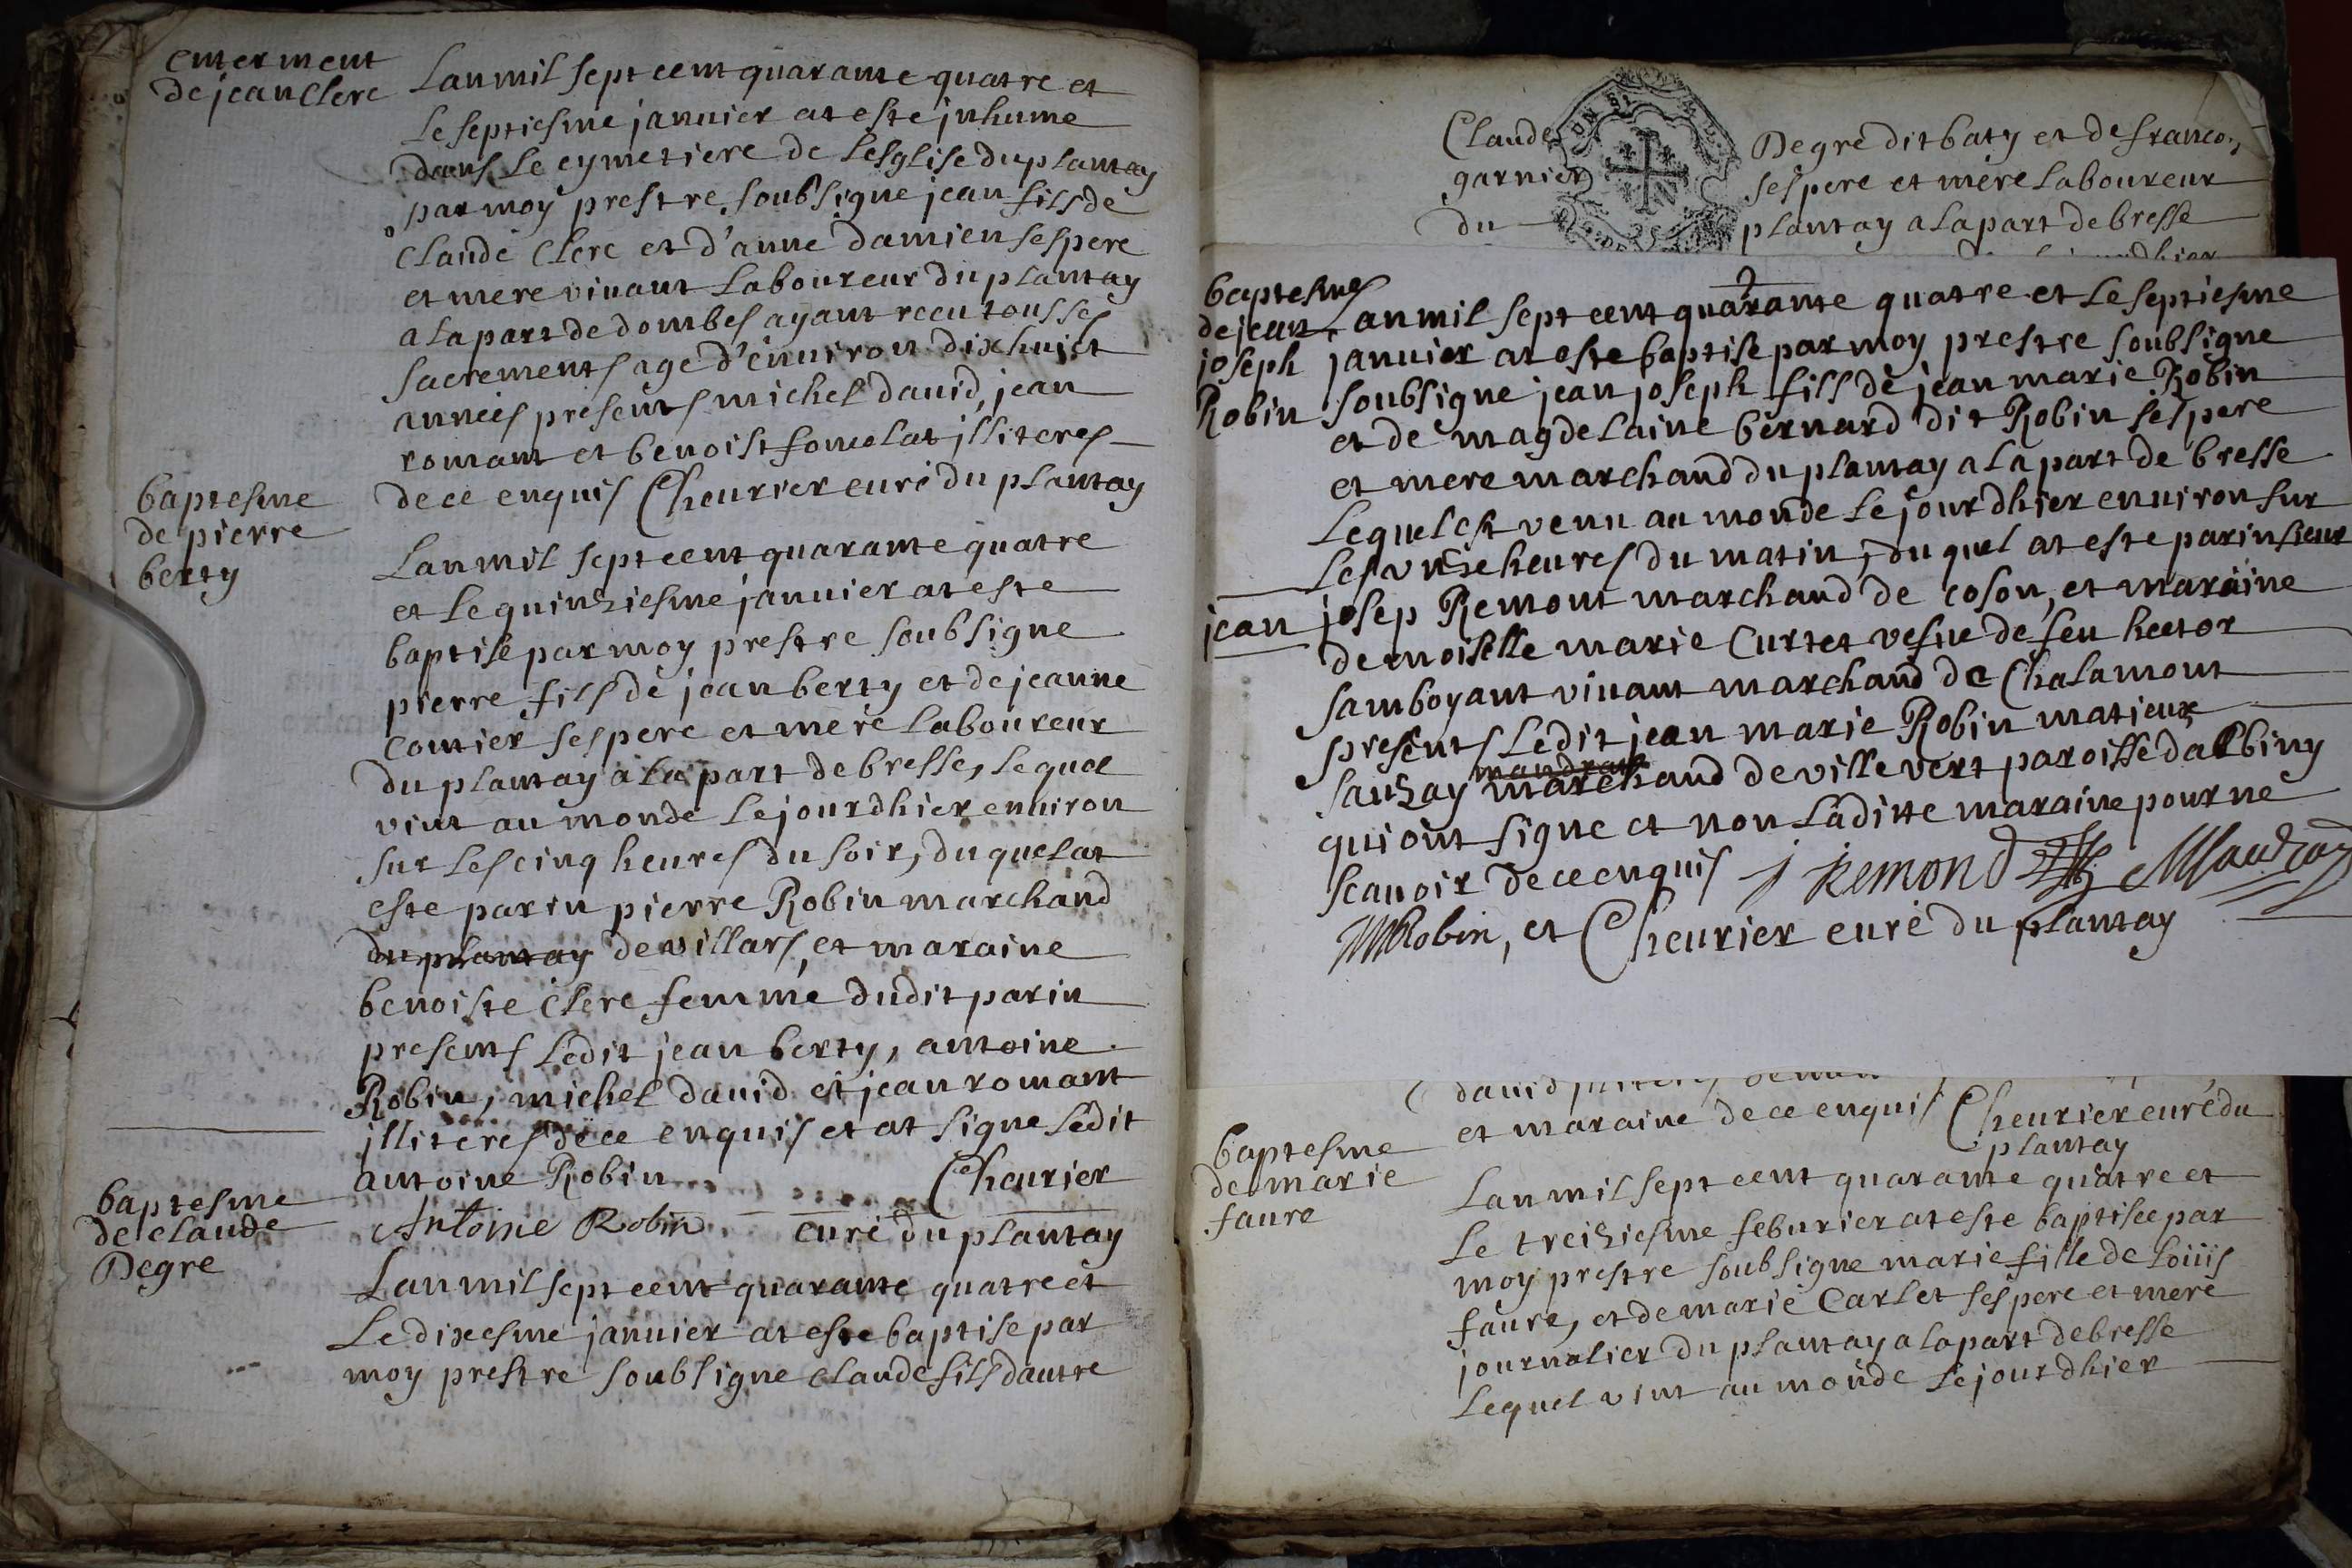 enterment
de jean Clerc
Lan mil sept cent quarante quatre et
le septiesme januier at este jnhume
dans le cymetiere de lesglise du plantay
par moy prestre soubsigne jean fils de
Claude Clerc et d'anne damien ses pere
et mere viuant laboureur du plantay
a la part de dombes ayant receu tous ses
sacrements age d'enuiron dixhuict
années presents michel dauid, jean
romant et benoist fonlat jlliteres
de ce enquis Cheurier curé du plantay
baptesme
de pierre
berty
Lan mil sept cent quarante quatre
et le quinziesme januier at este
baptise par moy prestre soubsigne
pierre fils de jean berty et de jeanne
Contier ses pere et mere laboureur
du plantay a la part de bresse, lequel
vint au monde le jour dhier enuiron
sur les cinq heures du soir, du quel at
este parin pierre Robin marchand
du plantay de villars, et maraine
benoiste Clerc femme dudit parin
presents ledit jean berty, antoine
Robin, michel dauid et jean romant
jlliteres de ce enquis et at signe ledit
antoine Robin Cheurier
Antoine Robin curé du plantay
baptesme
de claude
Degre
Lan mil sept cent quarante quatre et
le dixesme januier at este baptise par
moy prestre soubsigne claude fils dautre
Claude Degre dit baty et de francoi
garnier ses pere et mere laboureur
du plantay a la part de bresse
2
baptesme
de jean
joseph
Robin
Lan mil sept cent quarante quatre et le septiesme
januier at este baptise par moy prestre soubsigne
soubsigne jean joseph fils de jean marie Robin
et de magdelaine bernard dit Robin ses pere
et mere marchand du plantay a la part de bresse
lequel est venu au monde le jour dhier enuiron sur
les unze heures du matin, du quel at este parin sieur
jean josep Remont marchand de coson, et maraine
demoiselle marie Curtet vefue de feu hector
samboyant viuant marchand de Chalamont
presents ledit jean marie Robin matieux
sauzay marchand de villevert paroisse dalbiny
qui ont signe et non laditte maraine pour ne
scauoir de ce enquis j Remond MSauzay
JMRobin, et Cheurier curé du plantay
et maraine de ce enquis Cheurier curé du
plantay
baptesme
de marie
faure
Lan mil sept cent quarante quatre et
le treiziesme feburier at este baptisee par
moy prestre soubsigne marie fille de loüis
faure, et de marie Carlet ses pere et mere
journalier du plantay a la part de bresse
lequel vint au monde le jour dhier